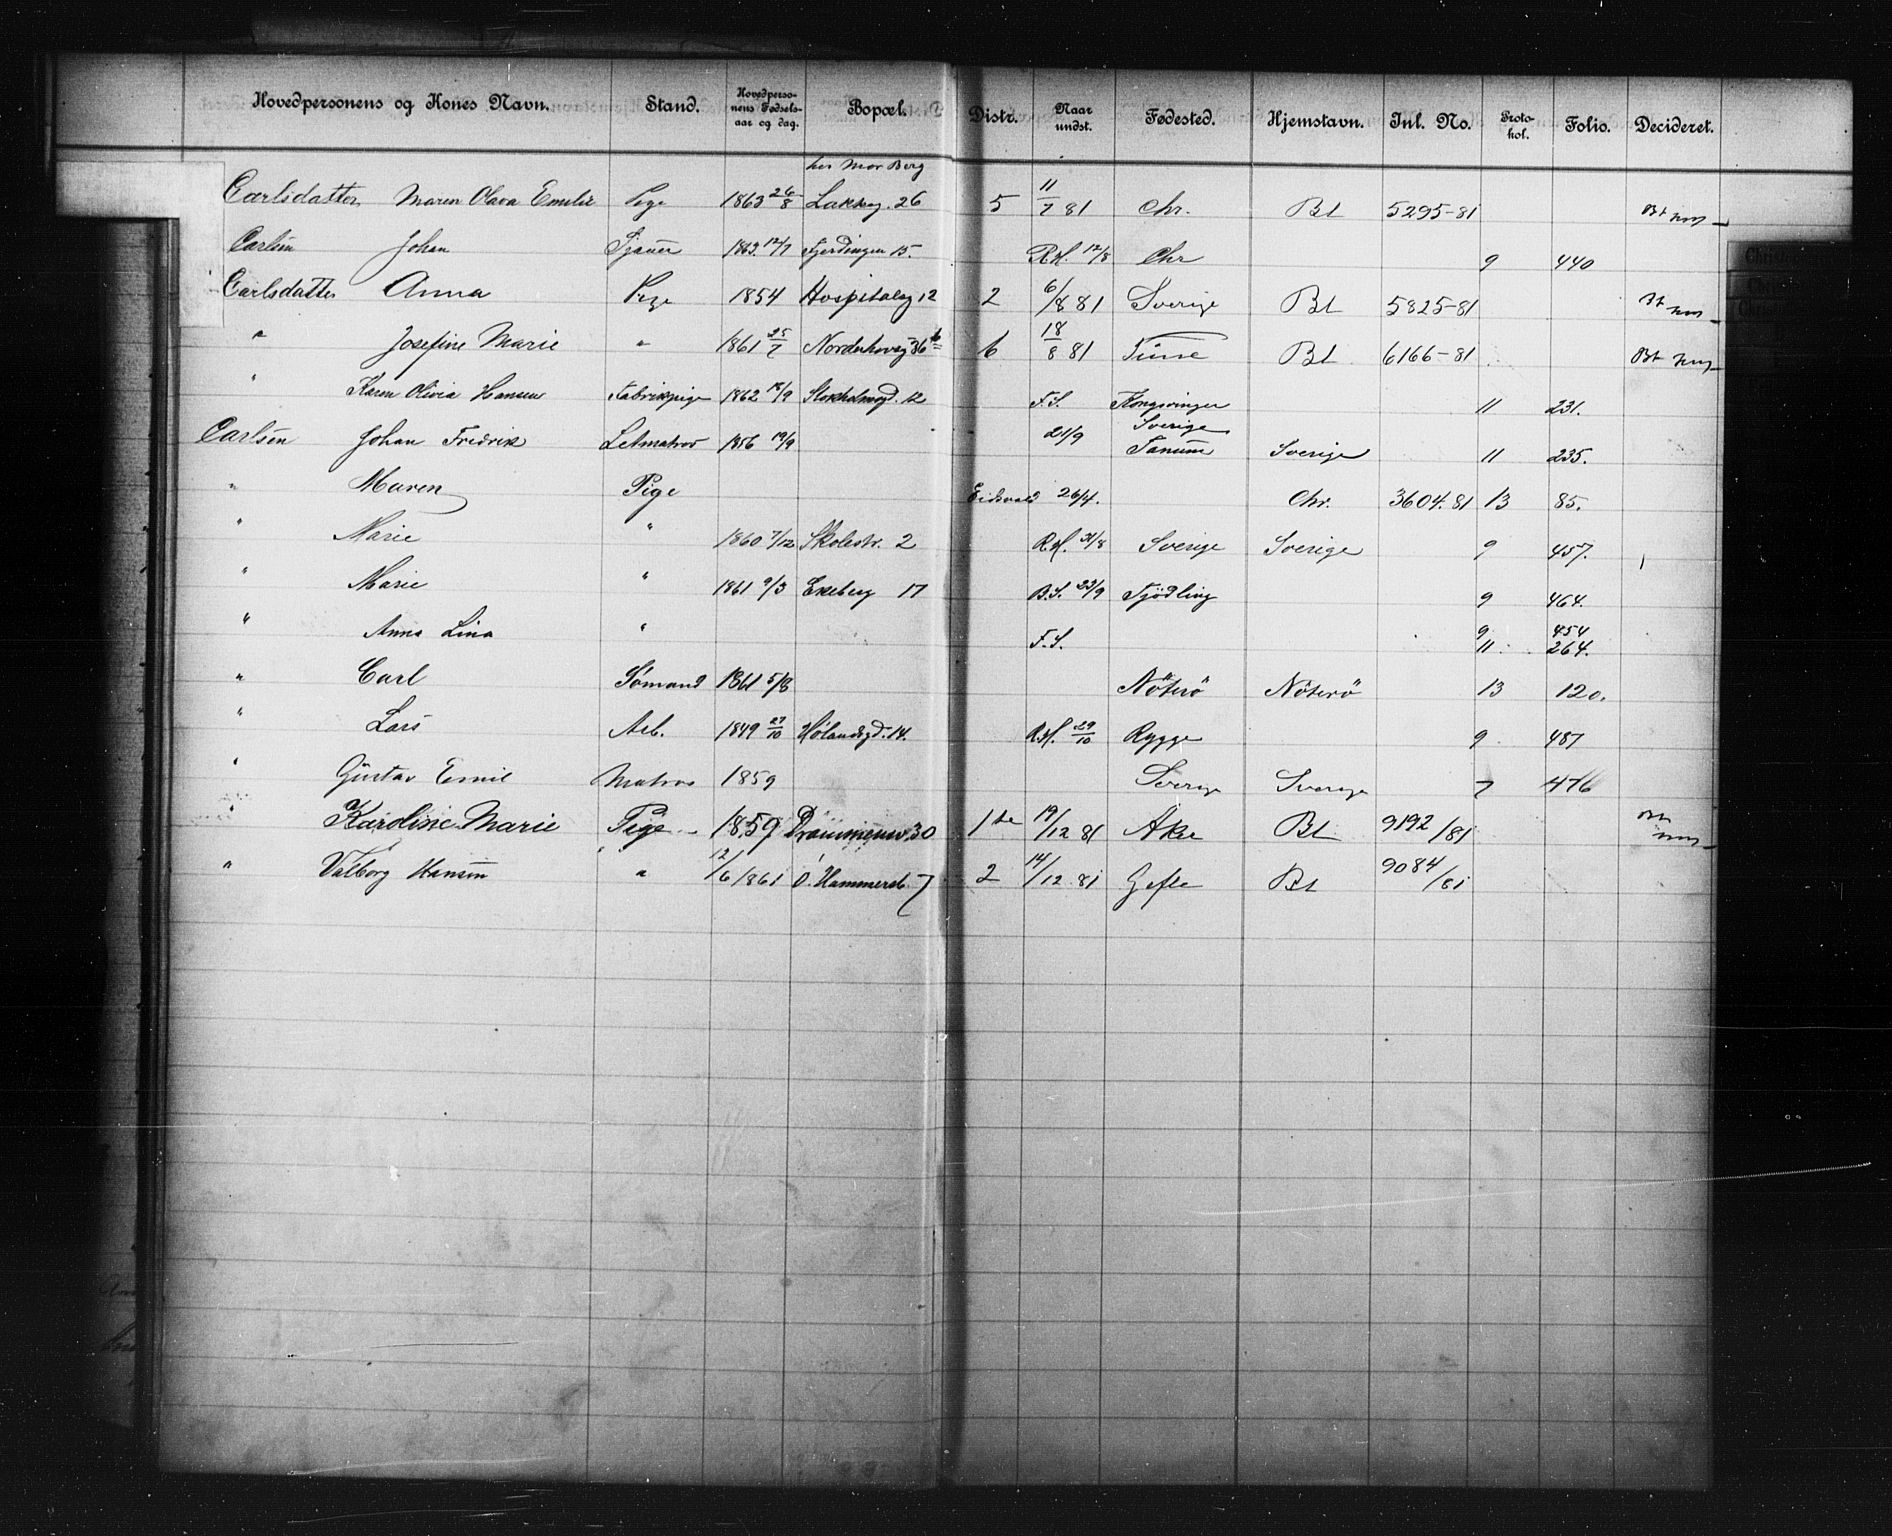 Hovedpersonens og Kones Navn. Stand. Hovedperso-nens Fødsels-aar og dag. Bopæl. Distr. Naar undst. Fødested. Hjemstavn. Inl. No. Proto-kol. Folio. Decideret.
hos Mor Berg
Carlsdatter Maren Olava Emilie Pige 1863 26/8 Lakkeg. 26 5 11/7 81 Chr. Bt 5295-81 Bt
Carlsen Johan Sjauer 1863 12/7 Fjerdingen 15. R.H. 12/8 Chr 9 440
Carlsdatter Anna Pige 1854 Hospitalsg 12 2 6/8 81 Sverige Bt 5825-81 Bt
" Josefine Marie " 1861 25/7 Nordahovsg 36 b 6 18/8 81 Tune Bt 6166-81 Bt
" Karen Olivia Hansen Fabrikpige 1862 18/9 Stokholmsgd. 12 F.S. Kongsvinger 11 231.
Carlsen Johan Fredrik Letmatros 1856 19/9 21/9 Sverige Tanum Sverige 11 235.
" Maren Pige Eidsvold 26/4. Chr. 3604.81 13 85.
" Marie " 1860 7/12 Skolestr. 2 R.H. 31/8 Sverige Sverige 9 457.
" Marie " 1861 9/3 Ekeberg 17 B.S. 23/9 Tjödling 9 464.
" Anna Lina " F.S. 9 454
11 264.
" Carl Sømand 1861 5/8 Nöterö Nöterö 13 120.
" Lars Arb. 1849 27/10 Hølandsgd. 14. R.H. 29/10 Rygge 9 487
" Gustav Emil Matros 1859 Sverige Sverige 7 476
" Karoline Marie Pige 1859 Drammensv. 30 1te 19/12 81 Aker Bt 9192/81 Bt
" Valborg Hansen " 12/6 1861 Ö. Hammersb. 7 2 14/12 81 Gefle Bt 9084/81